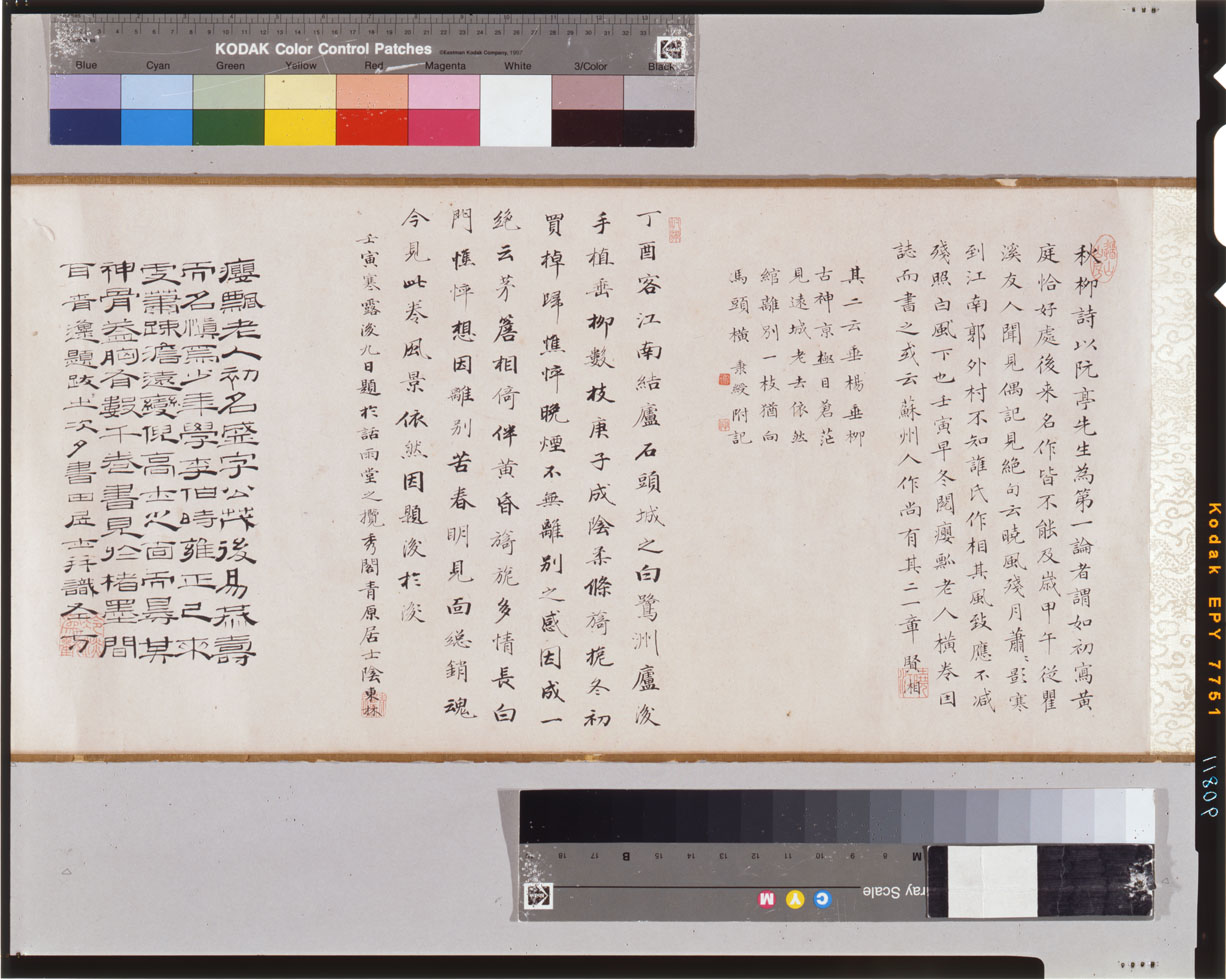 KODAK Color Control Patches
©Eastman Kodak Company, 1997
Blue Cyan Green Yellow Red Magenta White 3/Color Black
秋柳詩以阮亭先生為第一論者謂如初寫黃
庭恰好處後来名作皆不能及歲甲午從瞿
溪友人聞見偶記見絕句云曉風殘月蕭〻影寒
到江南郭外村不知誰氏作相其風致應不減
殘照白風下也壬寅早冬閱癭瓢老人橫卷因
誌而書之或云蘇州人作尚有其二一章 賢相
其二云垂楊垂柳
古神京極目蒼茫
見遠城老去依然
綰離別一枝猶向
馬頭橫 附記
丁酉客江南結廬石頭城之白鷺洲廬後
手植垂柳數枝庚子成陰柔條旖旎冬初
買棹歸憔悴晚煙不無離別之感因成一
絕云茅簷相倚伴黃昏旖旎多情長白
門憔悴想因離別苦春明見面總銷魂
今見此卷風景依然因題後於後
壬寅寒露後九日題於話雨堂之攬秀閣青原居士陰東林
癭瓢老人初名盛字公茂後易恭壽
而名慎為少年學李伯時雍正已来
更蕭疎澹遠變倪高士之面而具其
神骨蓋胸有數千卷書見於楮墨間
百齋邊題跋之次夕書田居士并識
Gray Scale
C Y M
Kodak EPY 7751
11809